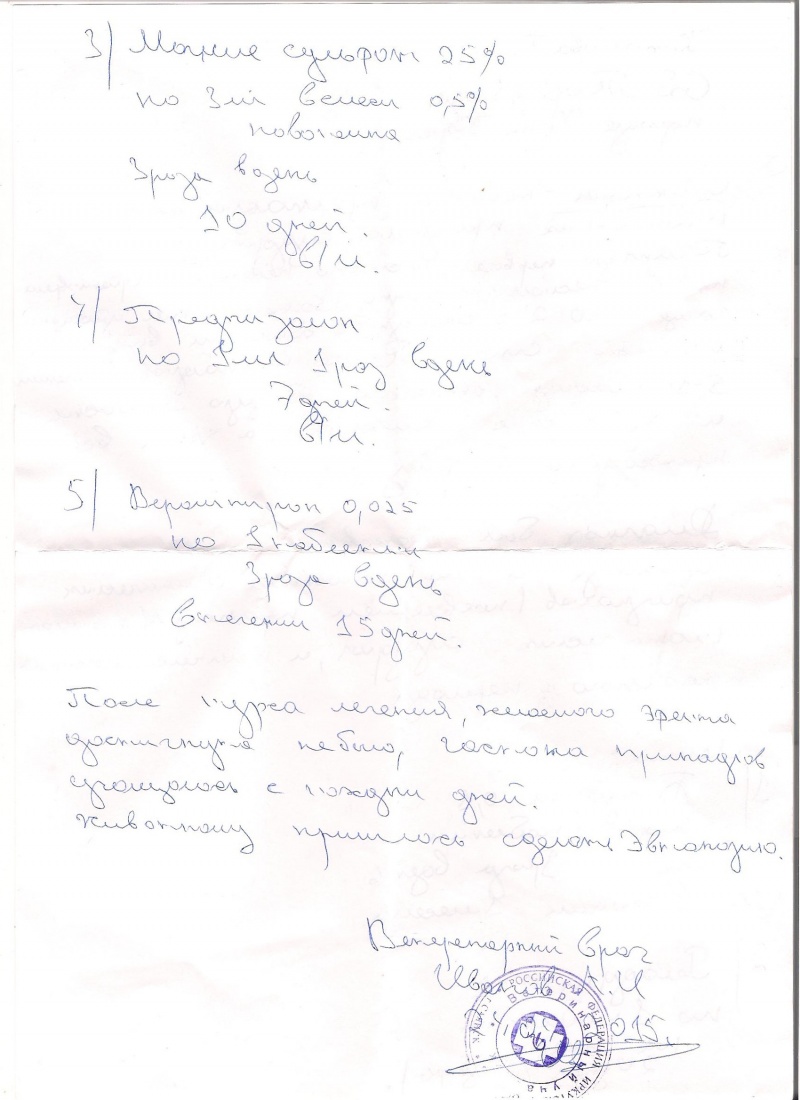 3) Магние сульфат 25%
по 3мл смеси 0,5%
новокаина
3 раза в день
10 дней.
в/м.
4) Преднизалон
по 1мл 1 раз в день
7 дней.
в/м.
5) Верошпирон 0,025
по 1 таблетки
3 раза в день
в течении 15 дней.
После курса лечения, желаемого эфекта
достигнута небыло, частота припадков
учащалась с каждым дней.
животному пришлось сделать Эвтаназию.
Ветеренарный врач
А.И
015г.
РОССИЙСКАЯ ФЕДЕРАЦИЯ ИРКУТСК
Ветеринарный уча